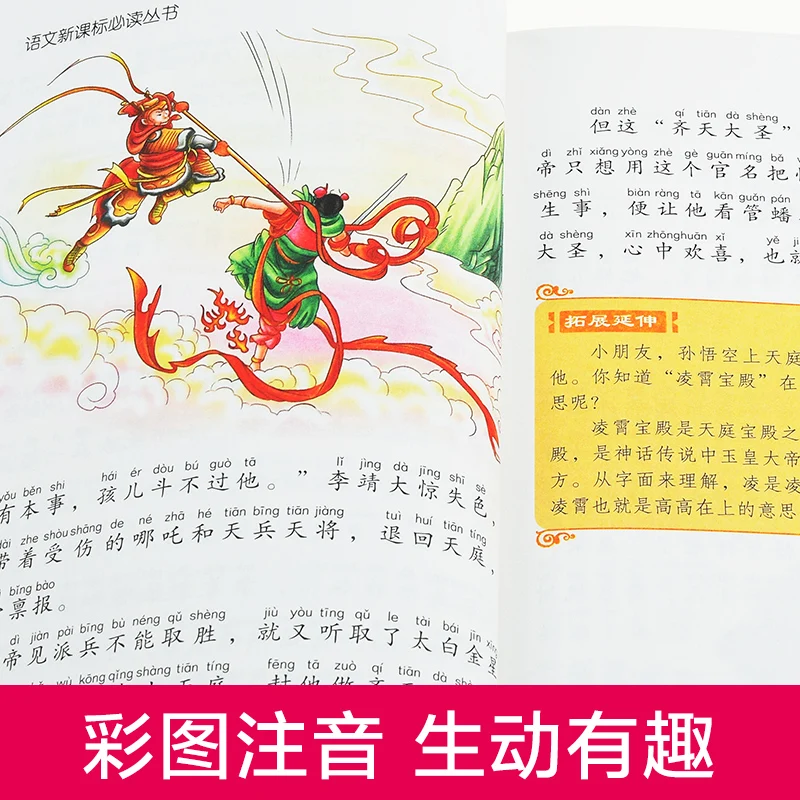 语文新课标必读丛书
yǒu běn shi hái ér dòu bú guò tā lǐ jìng dà jīng shī sè
有本事，孩儿斗不过他。”李靖大惊失色，
dài zhe shòu shāng de né zhā hé tiān bīng tiān jiàng tuì huí tiān tíng
带着受伤的哪吒和天兵天将，退回天庭，
bǐng bào
禀报。
dì jiàn pài bīng bù néng qǔ shèng jiù yòu tīng qǔ le tài bái jīn xīng
帝见派兵不能取胜，就又听取了太白金星
wù kōng qǐng shàng tiān tíng fēng tā zuò qí tiān
dàn zhè qí tiān dà shèng
但这“齐天大圣”
dì zhǐ xiǎng yòng zhè gè guān míng bǎ
帝只想用这个官名把
shēng shì biàn ràng tā kān guǎn pán
生事，便让他看管蟠
dà shèng xīn zhōng huān xǐ yě
大圣，心中欢喜，也就
拓展延伸
小朋友，孙悟空上天庭
他。你知道“凌霄宝殿”在
思呢？
凌霄宝殿是天庭宝殿之
殿，是神话传说中玉皇大帝
方。从字面来理解，凌是凌
凌霄也就是高高在上的意思
彩图注音 生动有趣